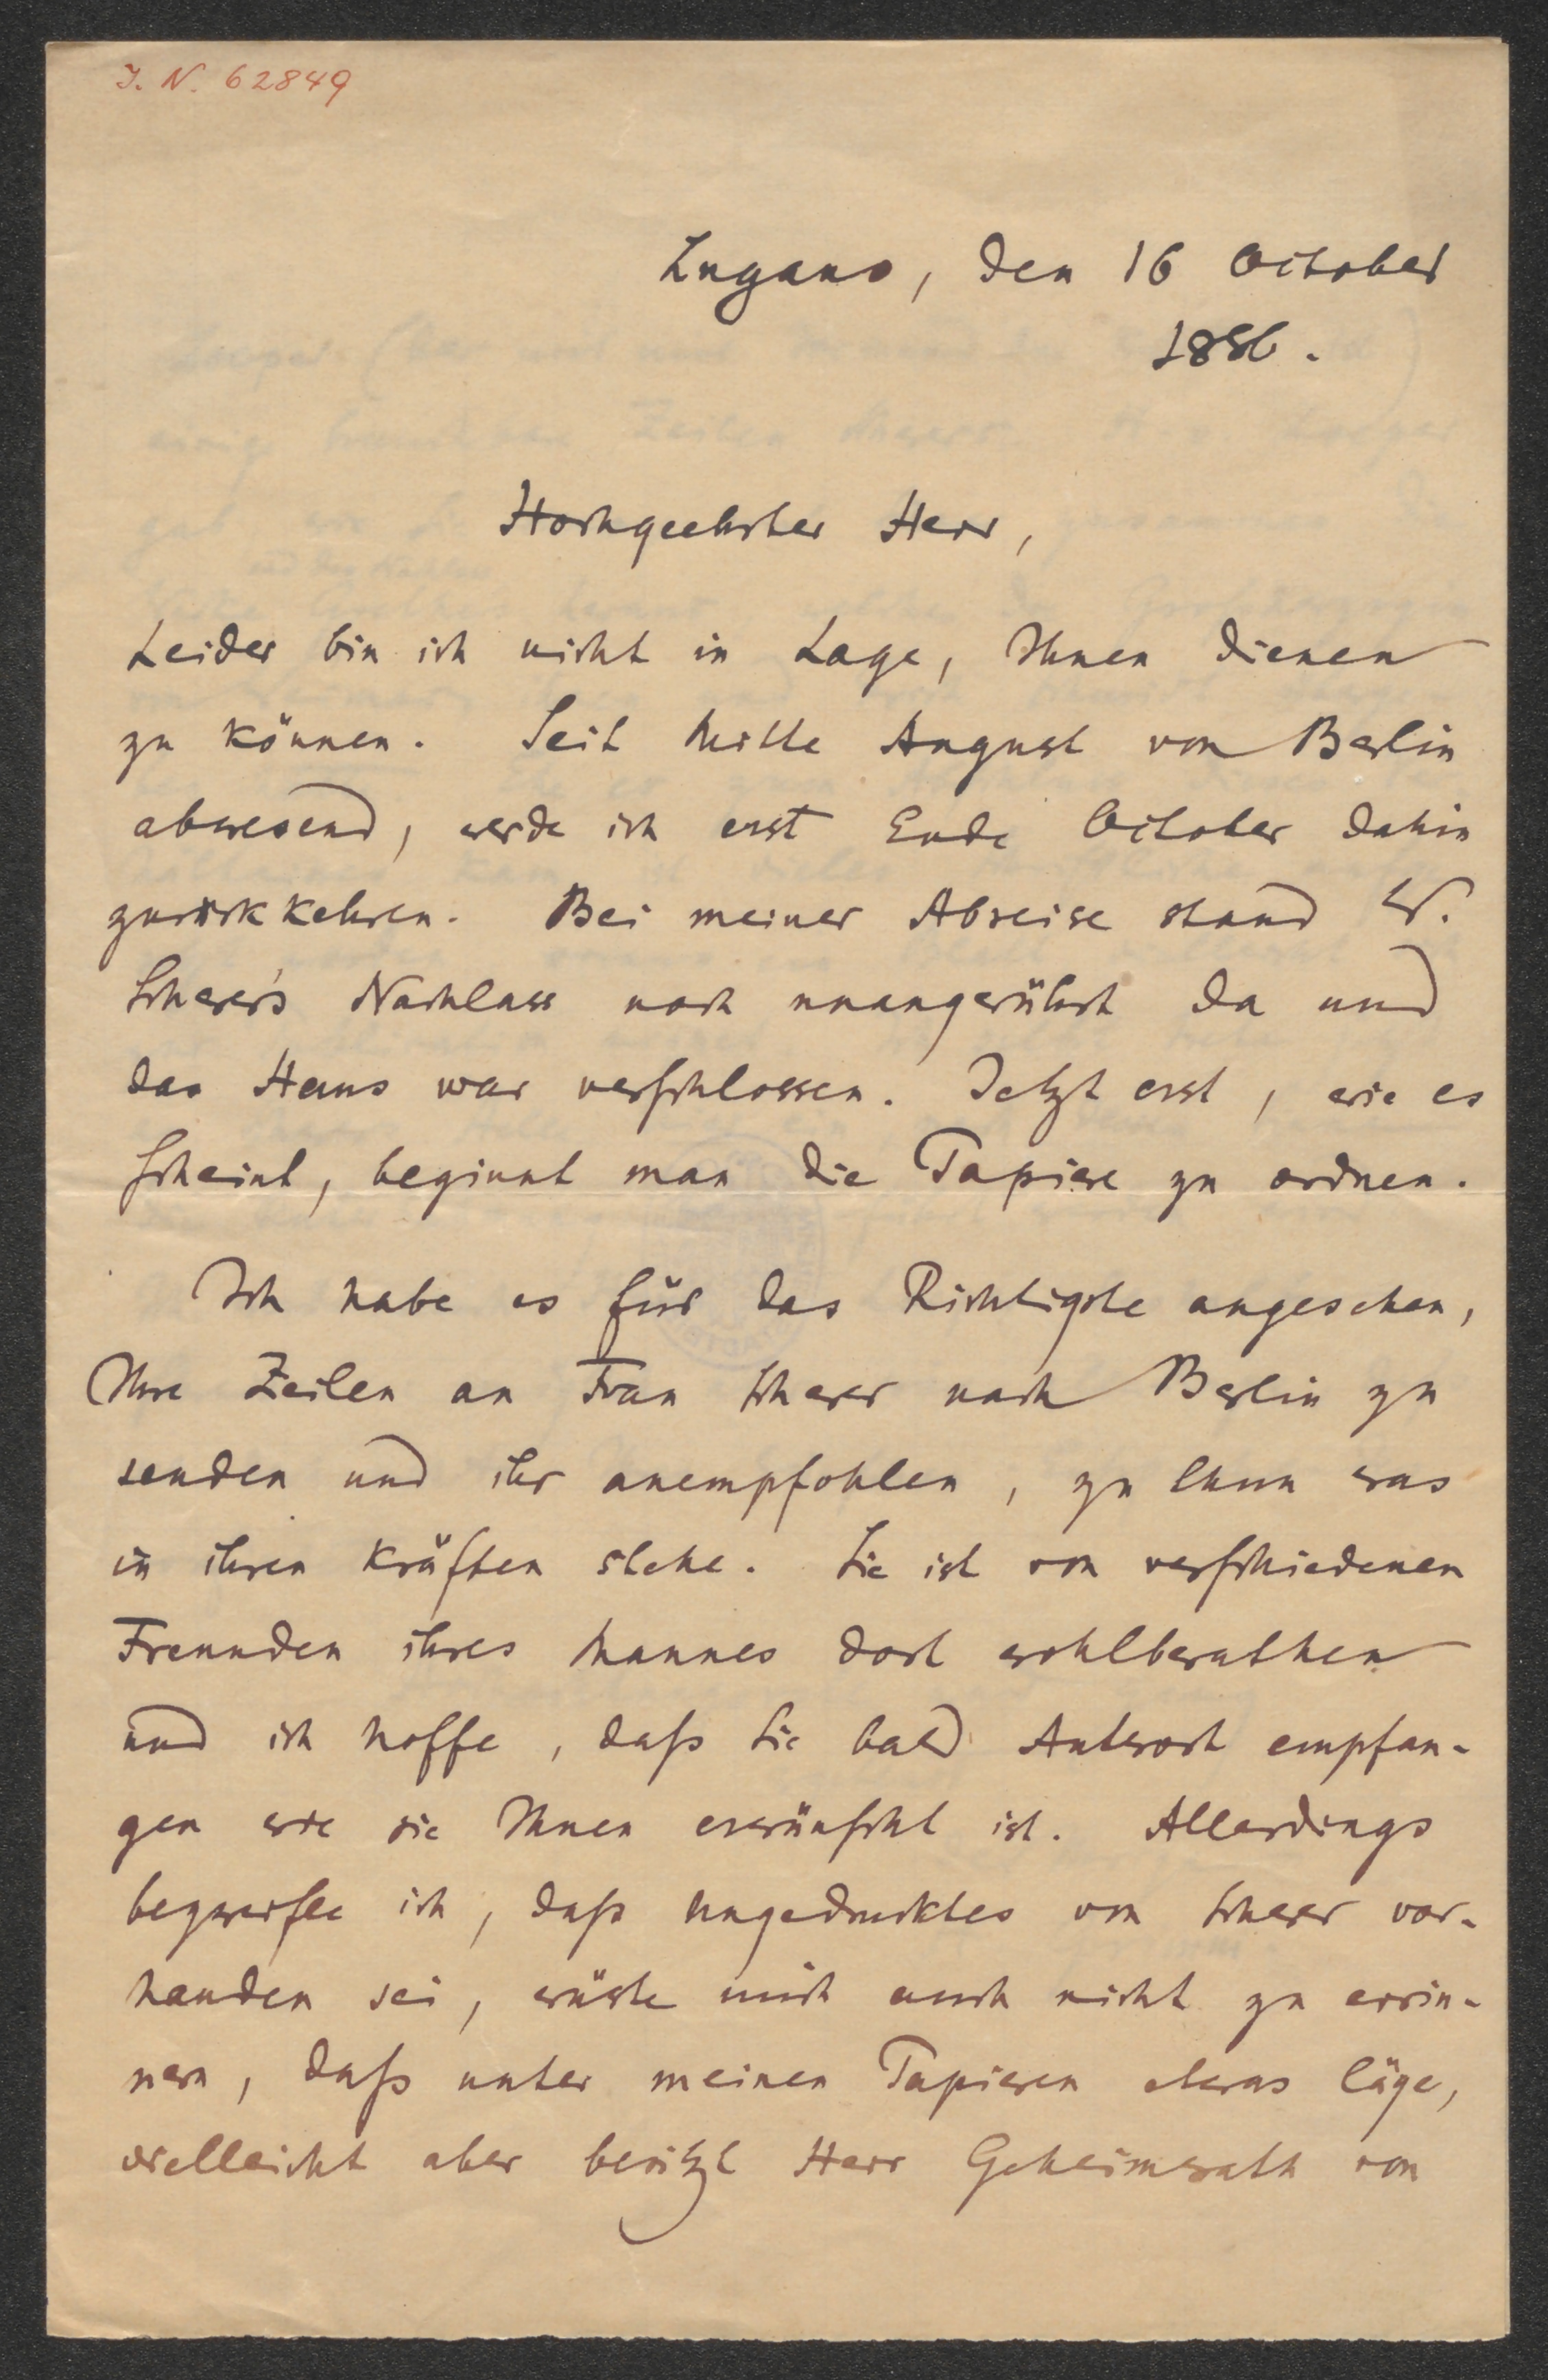 I. N. 62849
Lugano, den 16 October
1886.
Hochgeehrter Herr,
Leider bin ich nicht in Lage, Ihnen dienen
zu können. Seit Mitte August von Berlin
abwesend, werde ich erst Ende October dahin
zurückkehren. Bei meiner Abreise stand W.
Scherer's Nachlass noch unangerührt da und
das Haus war verschlossen. Jetzt erst, wie es
scheint, beginnt man die Papiere zu ordnen.
Ich habe es für das Richtigste angesehen,
Ihre Zeilen an Frau Scherer nach Berlin zu
senden und ihr anempfohlen, zu thun was
in ihren Kräften stehe. Sie ist von verschiedenen
Freunden ihres Mannes dort wohlberathen
und ich hoffe, daß Sie bald Antwort empfan-
gen wie sie Ihnen erwünscht ist. Allerdings
bezweifle ich, daß Ungedrucktes von Scherer vor-
handen sei, wüste mich auch nicht zu errin-
nern, daß unter meinen Papieren etwas läge,
vielleicht aber besitzt Herr Geheimerath von